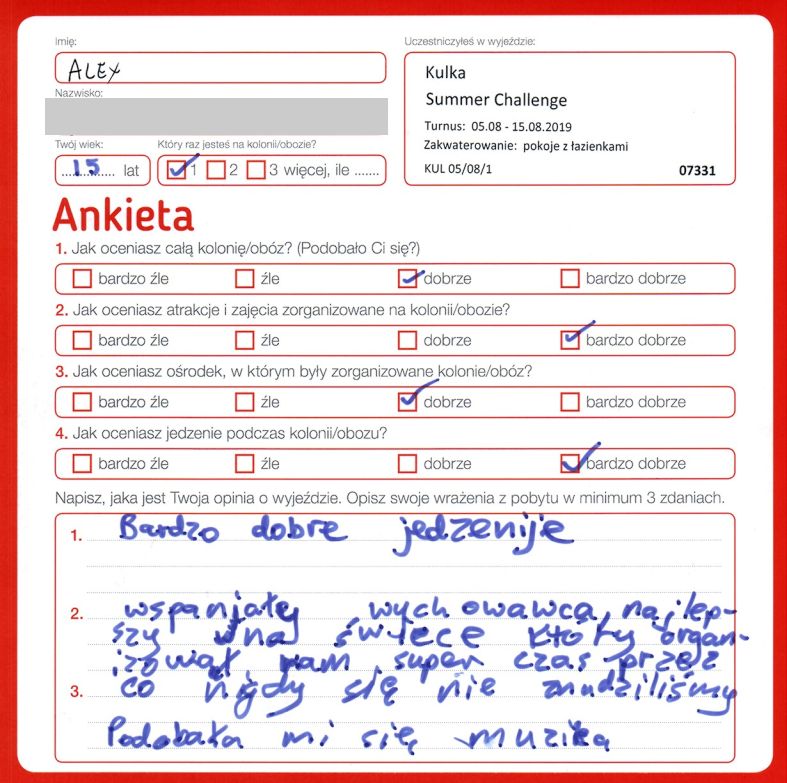 Imię:
Uczestniczyłeś w wyjeździe:
ALEX
Kulka
Summer Challenge
Nazwisko:
Turnus: 05.08 - 15.08.2019
Zakwaterowanie: pokoje z łazienkami
KUL 05/08/1 07331
Twój wiek: Który raz jesteś na kolonii/obozie?
15 lat 1 2 3 więcej, ile .......
Ankieta
1. Jak oceniasz całą kolonię/obóz? (Podobało Ci się?)
bardzo źle źle dobrze bardzo dobrze
2. Jak oceniasz atrakcje i zajęcia zorganizowane na kolonii/obozie?
bardzo źle źle dobrze bardzo dobrze
3. Jak oceniasz ośrodek, w którym były zorganizowane kolonie/obóz?
bardzo źle źle dobrze bardzo dobrze
4. Jak oceniasz jedzenie podczas kolonii/obozu?
bardzo źle źle dobrze bardzo dobrze
Napisz, jaka jest Twoja opinia o wyjeździe. Opisz swoje wrażenia z pobytu w minimum 3 zdaniach.
1. Bardzo dobre jedzenije
2. wspanjały wychowawca, najlep-
szy na świece który organ-
izował nam super czas przez
3. co nigdy się nie znudziliśmy
Podobała mi się muzika